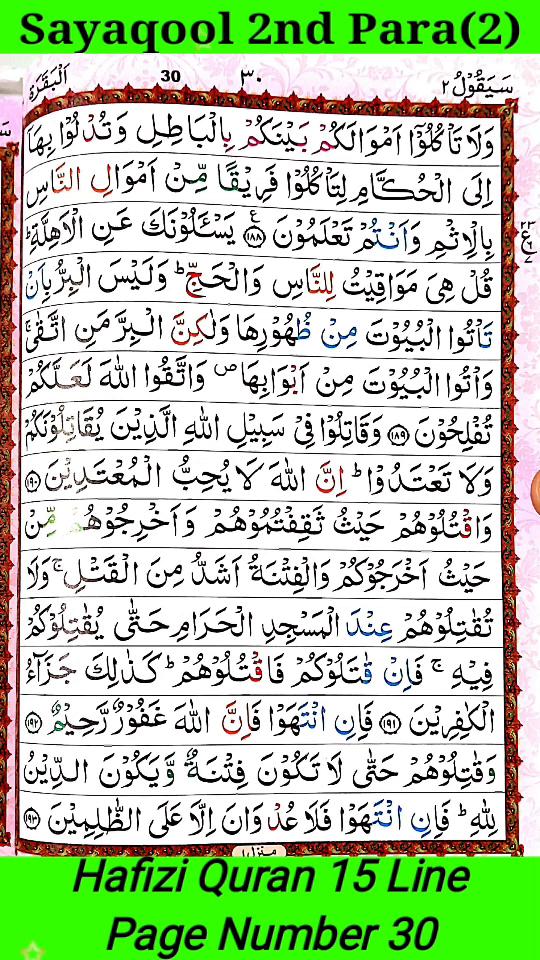 Sayaqool 2nd Para(2)
سَيَقُوْلُ ٢
٣٠
30
اَلْبَقَرَة
وَلَا تَاْكُلُوْٓا اَمْوَالَكُمْ بَيْنَكُمْ بِالْبَاطِلِ وَتُدْلُوْا بِهَآ
اِلَى الْحُكَّامِ لِتَاْكُلُوْا فَرِيْقًا مِّنْ اَمْوَالِ النَّاسِ
بِالْاِثْمِ وَاَنْتُمْ تَعْلَمُوْنَ ۧ ﴿١٨٨﴾ يَسْـَٔلُوْنَكَ عَنِ الْاَهِلَّةِ ؕ
قُلْ هِىَ مَوَاقِيْتُ لِلنَّاسِ وَالْحَجِّ ؕ وَلَيْسَ الْبِرُّ بِاَنْ
تَاْتُوا الْبُيُوْتَ مِنْ ظُهُوْرِهَا وَلٰكِنَّ الْبِرَّ مَنِ اتَّقٰى ۚ
وَاْتُوا الْبُيُوْتَ مِنْ اَبْوَابِهَا ۪ وَاتَّقُوا اللّٰهَ لَعَلَّكُمْ
تُفْلِحُوْنَ ﴿١٨٩﴾ وَقَاتِلُوْا فِىْ سَبِيْلِ اللّٰهِ الَّذِيْنَ يُقَاتِلُوْنَكُمْ
وَلَا تَعْتَدُوْا ؕ اِنَّ اللّٰهَ لَا يُحِبُّ الْمُعْتَدِيْنَ ﴿١٩٠﴾
وَاقْتُلُوْهُمْ حَيْثُ ثَقِفْتُمُوْهُمْ وَاَخْرِجُوْهُمْ مِّنْ
حَيْثُ اَخْرَجُوْكُمْ وَالْفِتْنَةُ اَشَدُّ مِنَ الْقَتْلِ ۚ وَلَا
تُقٰتِلُوْهُمْ عِنْدَ الْمَسْجِدِ الْحَرَامِ حَتّٰى يُقٰتِلُوْكُمْ
فِيْهِ ۚ فَاِنْ قٰتَلُوْكُمْ فَاقْتُلُوْهُمْ ؕ كَذٰلِكَ جَزَآءُ
الْكٰفِرِيْنَ ﴿١٩١﴾ فَاِنِ انْتَهَوْا فَاِنَّ اللّٰهَ غَفُوْرٌ رَّحِيْمٌ ﴿١٩٢﴾
وَقٰتِلُوْهُمْ حَتّٰى لَا تَكُوْنَ فِتْنَةٌ وَّيَكُوْنَ الدِّيْنُ
لِلّٰهِ ؕ فَاِنِ انْتَهَوْا فَلَا عُدْوَانَ اِلَّا عَلَى الظّٰلِمِيْنَ ﴿١٩٣﴾
Hafizi Quran 15 Line
Page Number 30